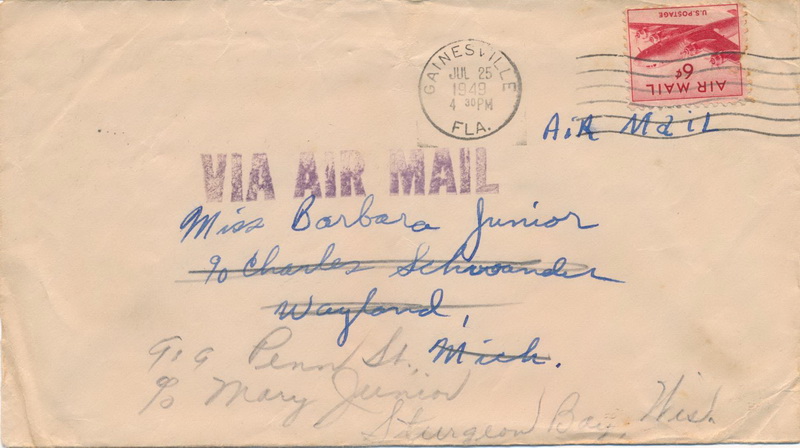 U.S. POSTAGE
6¢
AIR MAIL
GAINESVILLE
JUL 25
1949
4 30 PM
FLA.
Air Mail
VIA AIR MAIL
Miss Barbara Junior
c/o Charles
Wayland,
Penn St., Mich.
c/o Mary Junior
Sturgeon Bay, Wis.